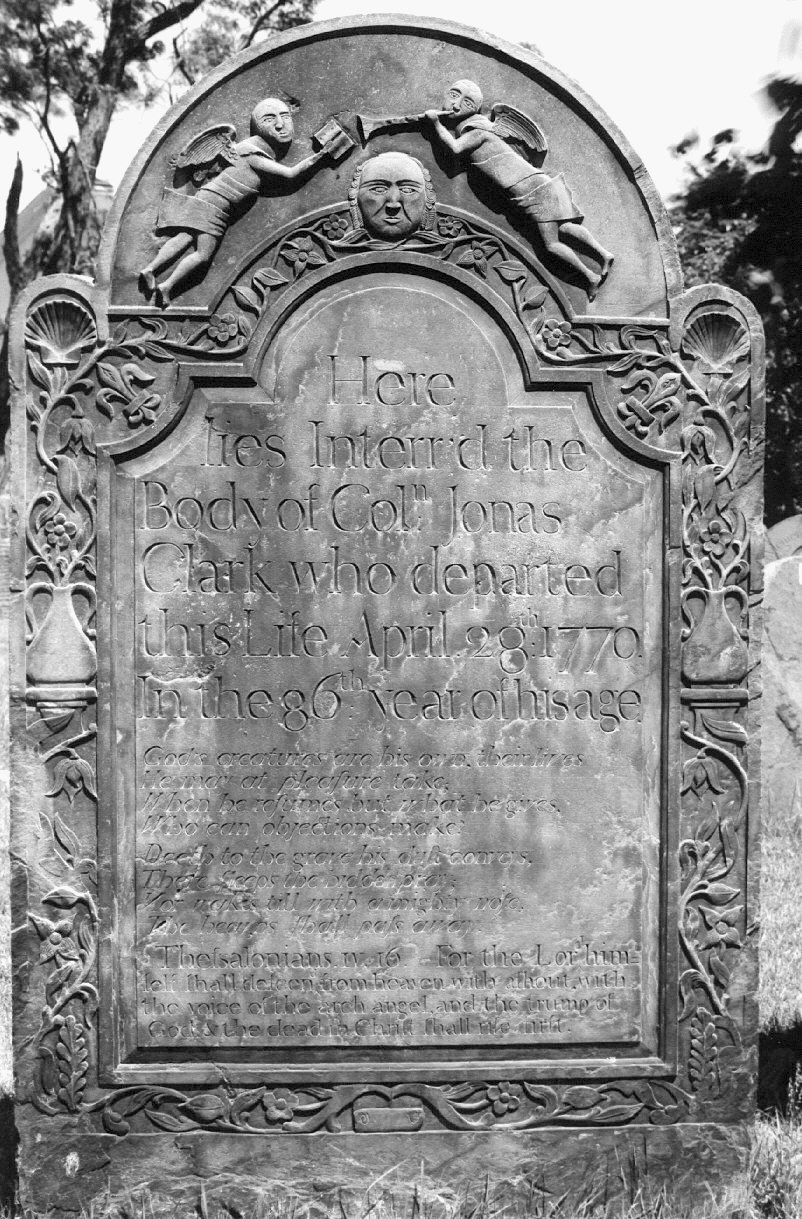 Here
lies Interr'd the
Body of Colⁿ Jonas
Clark who departed
this Life April 28ᵗʰ: 1770.
In the 86ᵗʰ year of his age
God's creatures are his own, their lives
He may at pleaſure take,
When he reſumes but what he gives,
Who can objections make?
Death to the grave his conveys,
There ſleeps the prey,
Nor wakes till with a mighty noiſe,
The heavens ſhall paſs away.
Theſsalonians IV. 16 - For the Lord him-
ſelf ſhall deſcen from heaven with a ſhout, with
the voice of the arch angel, and the trump of
God & the dead in Chriſt ſhall riſe firſt.